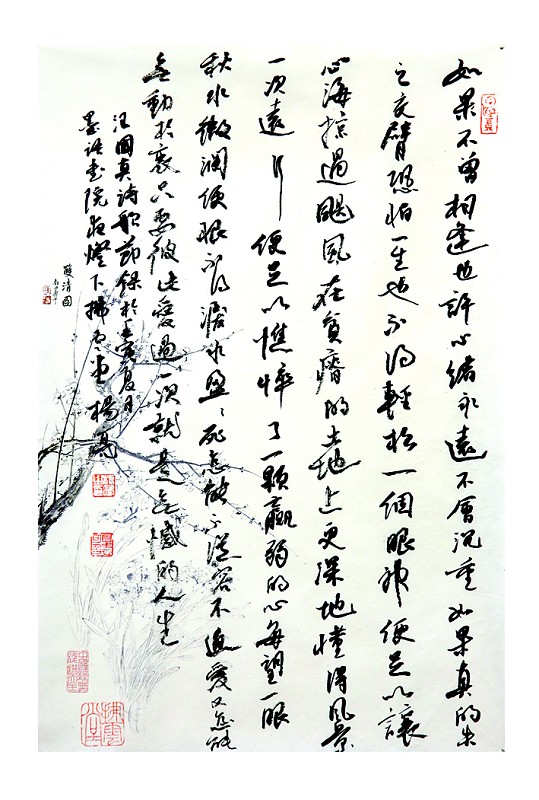 如果不曾相逢也許心緒永遠不會沉重如果真的失
之交臂恐怕一生也不得輕松一個眼神便足以讓
心海掠過颶風在貧瘠的土地上更深地懂得風景
一次遠行便足以憔悴了一顆羸弱的心每望一眼
秋水微瀾便恨不得淚水盈盈死怎能不從容不迫愛又怎能
無動於衷只要彼此愛過一次就是無憾的人生
汪國真詩歌節錄於壬寅夏月
墨語書院夜燈下拂雲堂楊亮
雙清圖
拂雲堂